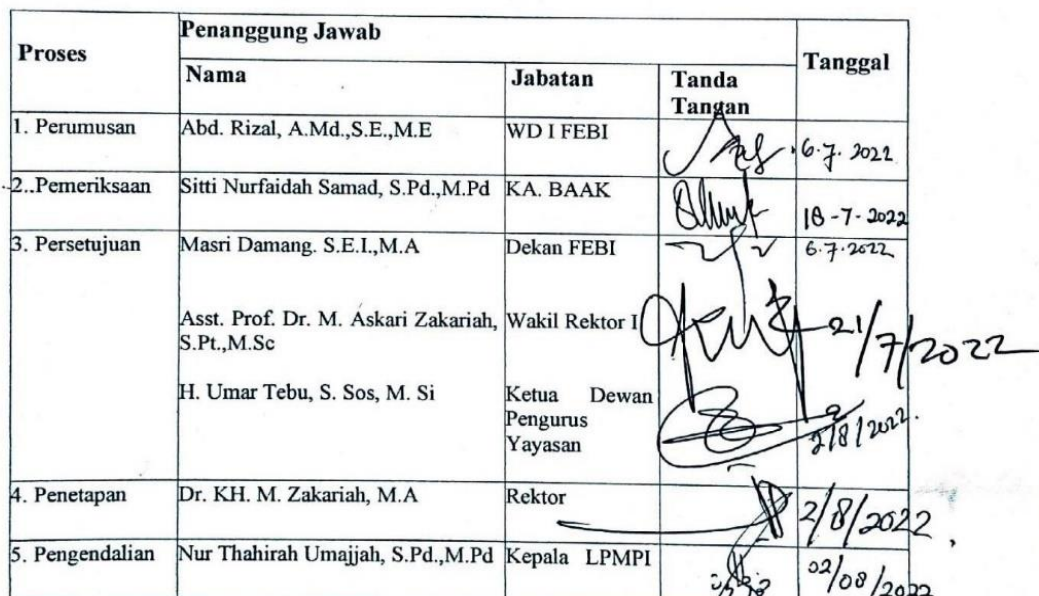 Proses
Penanggung Jawab
Tanggal
Nama
Jabatan
Tanda
Tangan
1. Perumusan
Abd. Rizal, A.Md.,S.E.,M.E
WD I FEBI
6.7.2022
2..Pemeriksaan
Sitti Nurfaidah Samad, S.Pd.,M.Pd
KA. BAAK
18-7-2022
3. Persetujuan
Masri Damang. S.E.I.,M.A
Dekan FEBI
6.7.2022
Asst. Prof. Dr. M. Askari Zakariah,
S.Pt.,M.Sc
Wakil Rektor I
21/7/2022
H. Umar Tebu, S. Sos, M. Si
Ketua Dewan
Pengurus
Yayasan
2/8/2022.
4. Penetapan
Dr. KH. M. Zakariah, M.A
Rektor
2/8/2022
5. Pengendalian
Nur Thahirah Umajjah, S.Pd.,M.Pd
Kepala LPMPI
02/08/2022